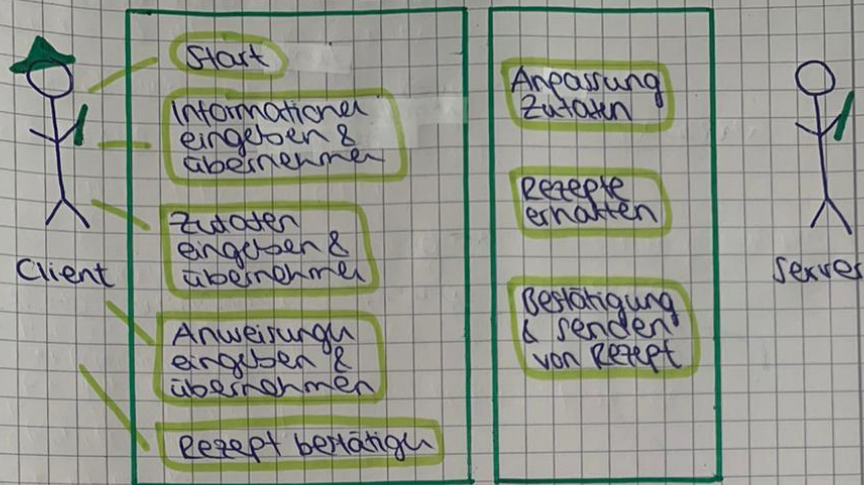 Start
Informationen
eingeben &
übernehmen
Zutaten
eingeben &
übernehmen
Anweisungen
eingeben &
übernehmen
Rezept bestätigen
Client
Anpassung
Zutaten
Rezepte
erhalten
Bestätigung
& senden
von Rezept
Server